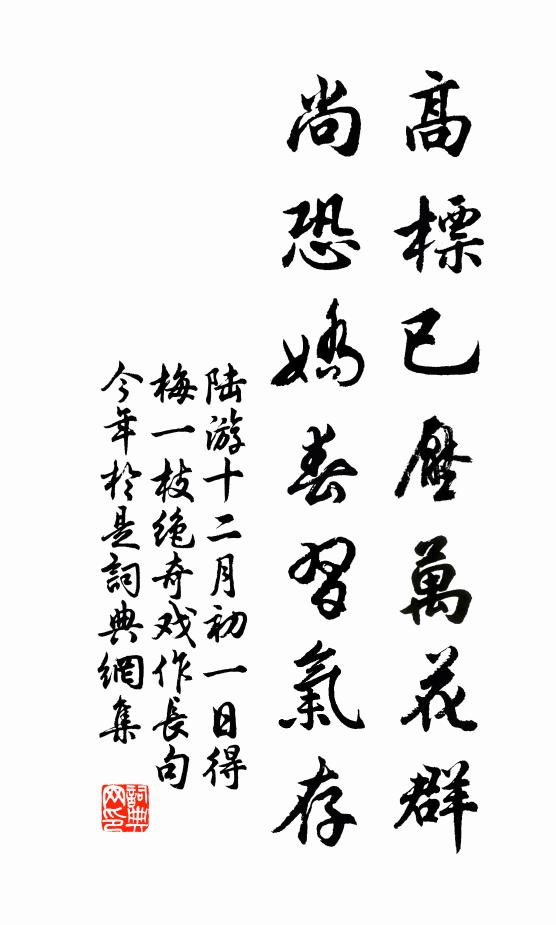 高標已壓萬花群
尚恐嬌春習氣存
陆游十二月初一日得
梅一枝绝奇戏作長句
今年於是詞典網集
詞典網印